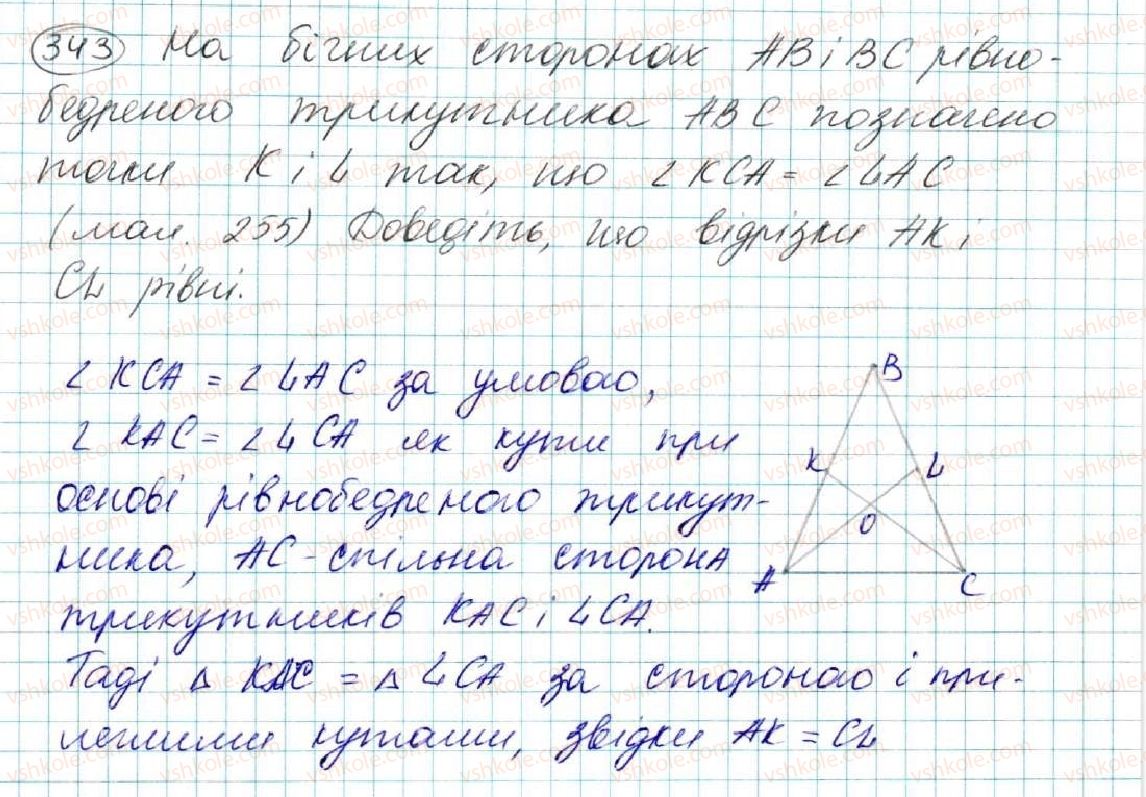 343 На бічних сторонах AB і BC рівно-
бедреного трикутника ABC позначено
точки K і L так, що ∠KCA = ∠LAC
(мал. 255) Доведіть, що відрізки AK і
CL рівні.
∠KCA = ∠LAC за умовою,
∠KAC = ∠LCA як кути при
основі рівнобедреного трикут-
ника, AC - спільна сторона
трикутників KAC і LCA.
Тоді Δ KAC = Δ LCA за стороною і при-
леглими кутами, звідки AK = CL
B
K
L
O
A
C
vshkole.com